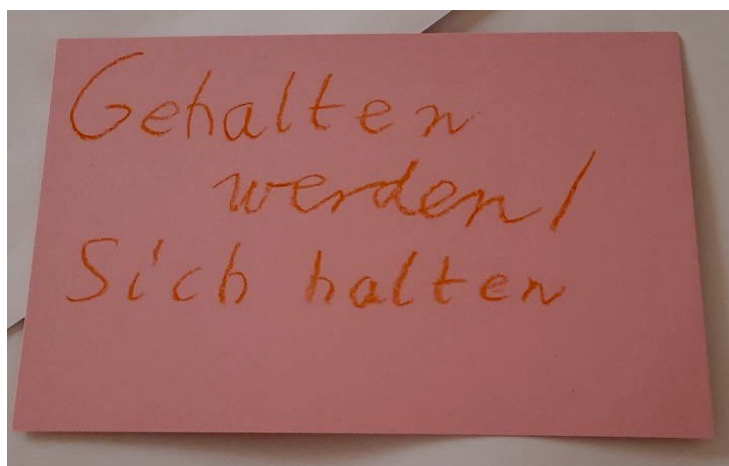 Gehalten
werden/
Sich halten